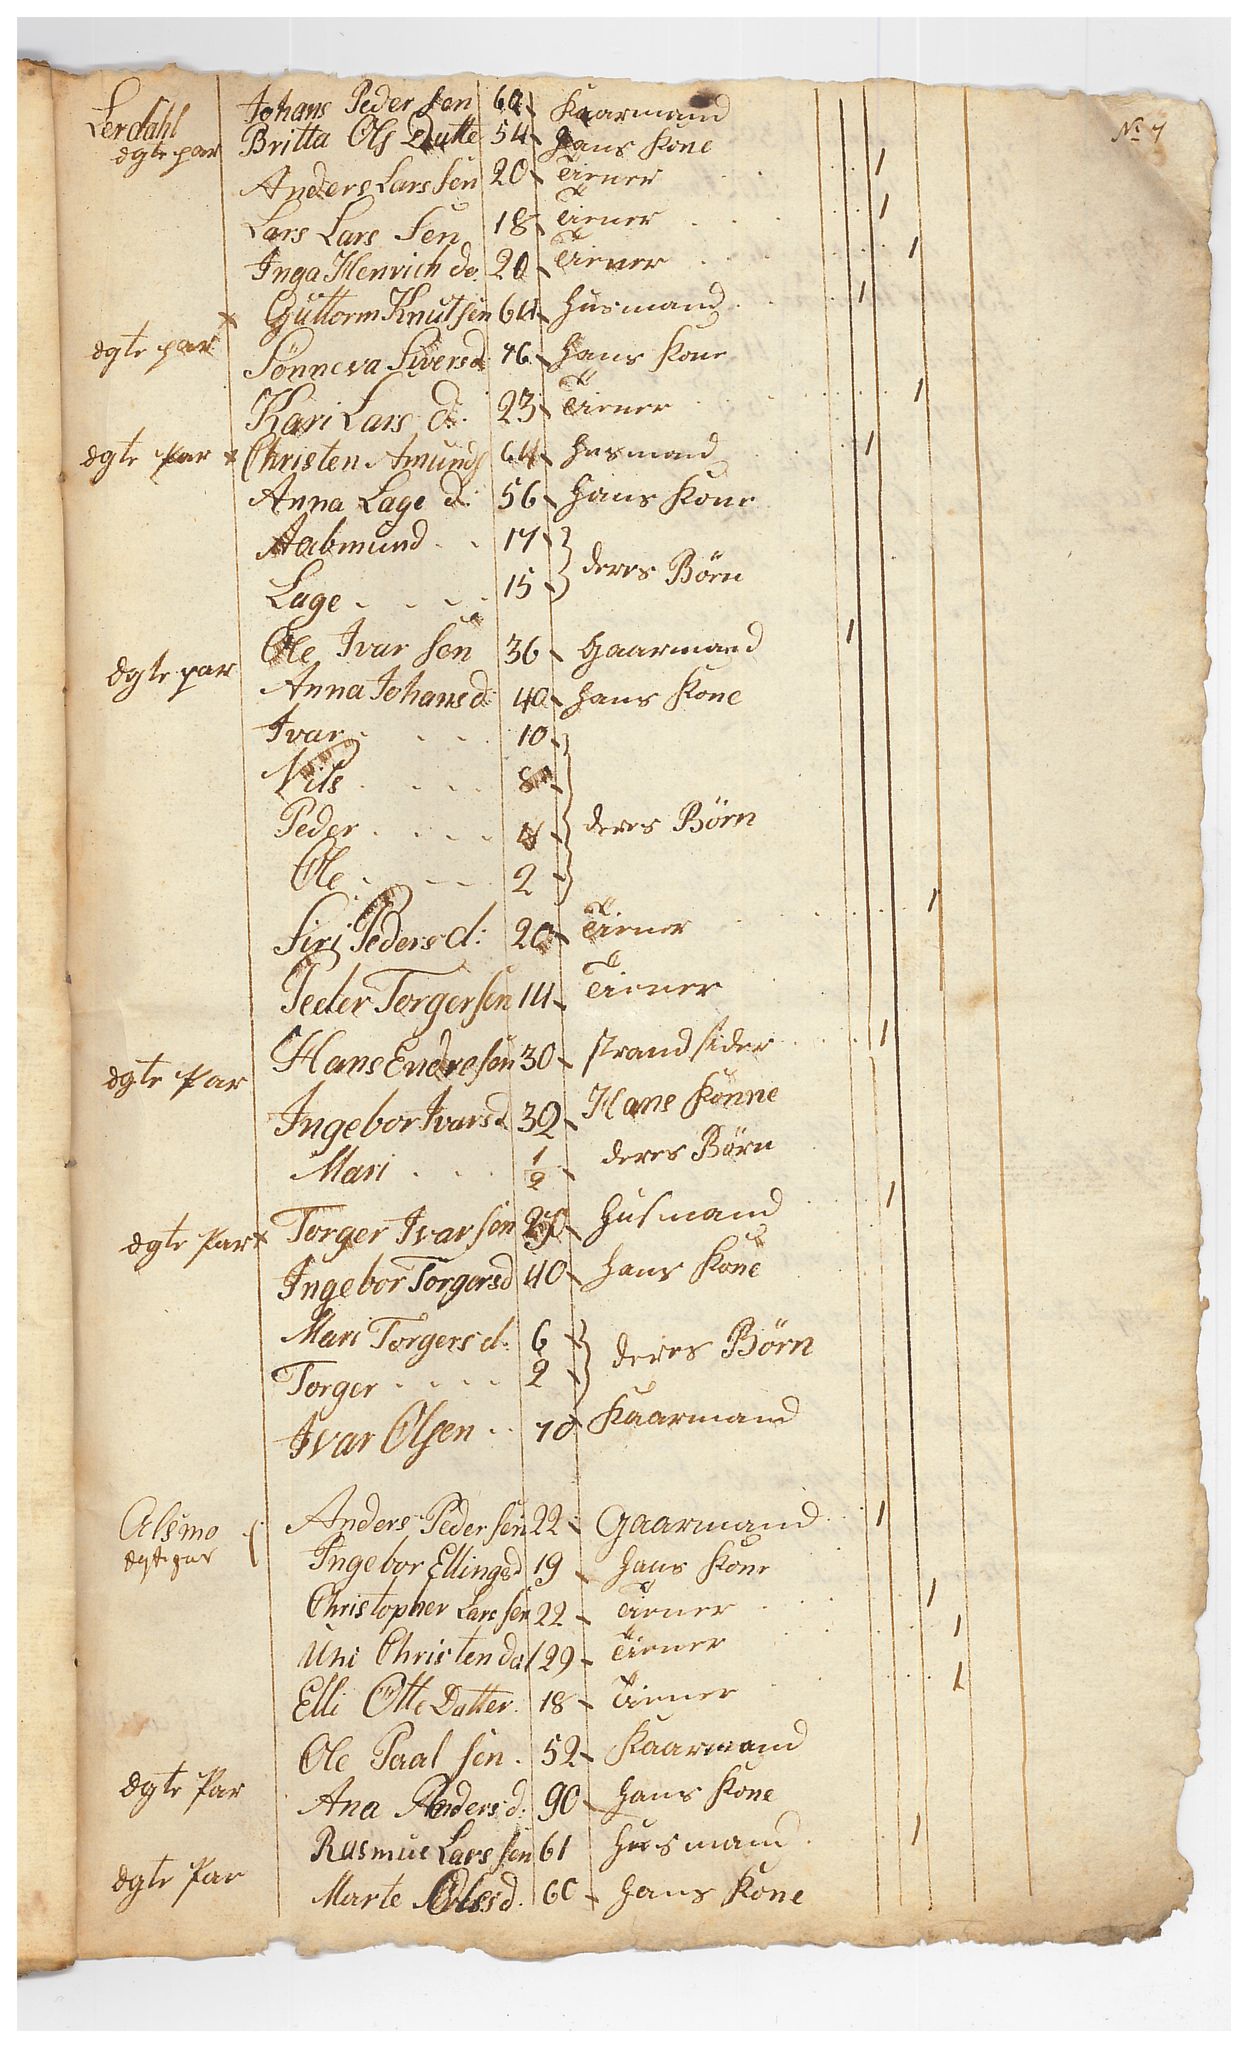 No 7
Lerdahl Johans Pedersen 60 Kaarmand
ægte par Britta Ols Datte 54 hans Kone
Anders Larssen 20 Tiener 1
Lars Lars Sen 18 Tiener 1
Inga Henrich do. 20 Tiener 1
x Guttorm Knutsen 64 husmand 1
ægte par Sönneva Siversd 46 hans Kone
Kari Lars d. 23 Tiener 1
ægte Par x Christen Amunds 64 husmand 1
Anna Lage d: 56 hans Kone
Aabmund 17
Lage 15 } deres Börn
Ole Ivar Sen 36 Gaarmand 1
ægte par Anna Johans d: 40 hans Kone
Ivar 10
Nils 8
Peder 4 } deres Börn
Ole 2
Siri Peders d: 20 Tiener 1
Peder Torgersen 14 Tiener
Hans Endresen 30 strandsider 1
ægte Par Ingebor Ivarsd 32 Hans Könne
Mari 1/2 deres Börn
ægte Par x Torger Ivarsen husmand 1
Ingebor Torgersd 40 hans Kone
Mari Torgers d: 6
Torger 2 } deres Börn
Ivar Olsen 70 Kaarmand
Alsmo { Anders Pedersen 22 Gaarmand 1
ægte par Ingebor Ellingsd 19 hans Kone
Christopher Larssen 22 Tiener 1
Uni Christen dat 29 Tiener 1
Elli Otte Datter 18 Tiener 1
Ole Paal Sen 52 Kaarmand
ægte Par Ana Anders d: 90 hans Kone
Rasmus Larssen 61 husmand 1
ægte Par Marte Olesd. 60 hans Kone